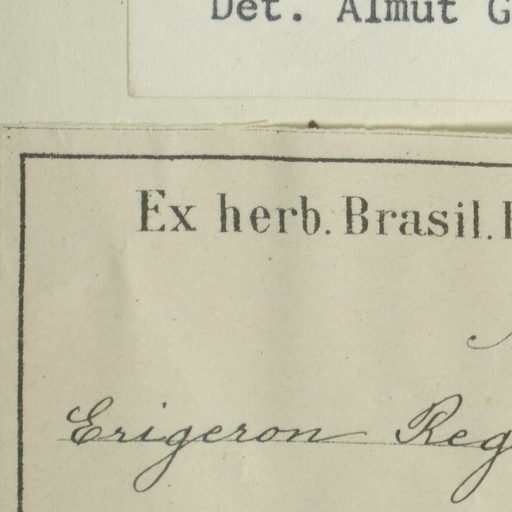 Det. Almut G
Ex herb. Brasil.
Erigeron Reg